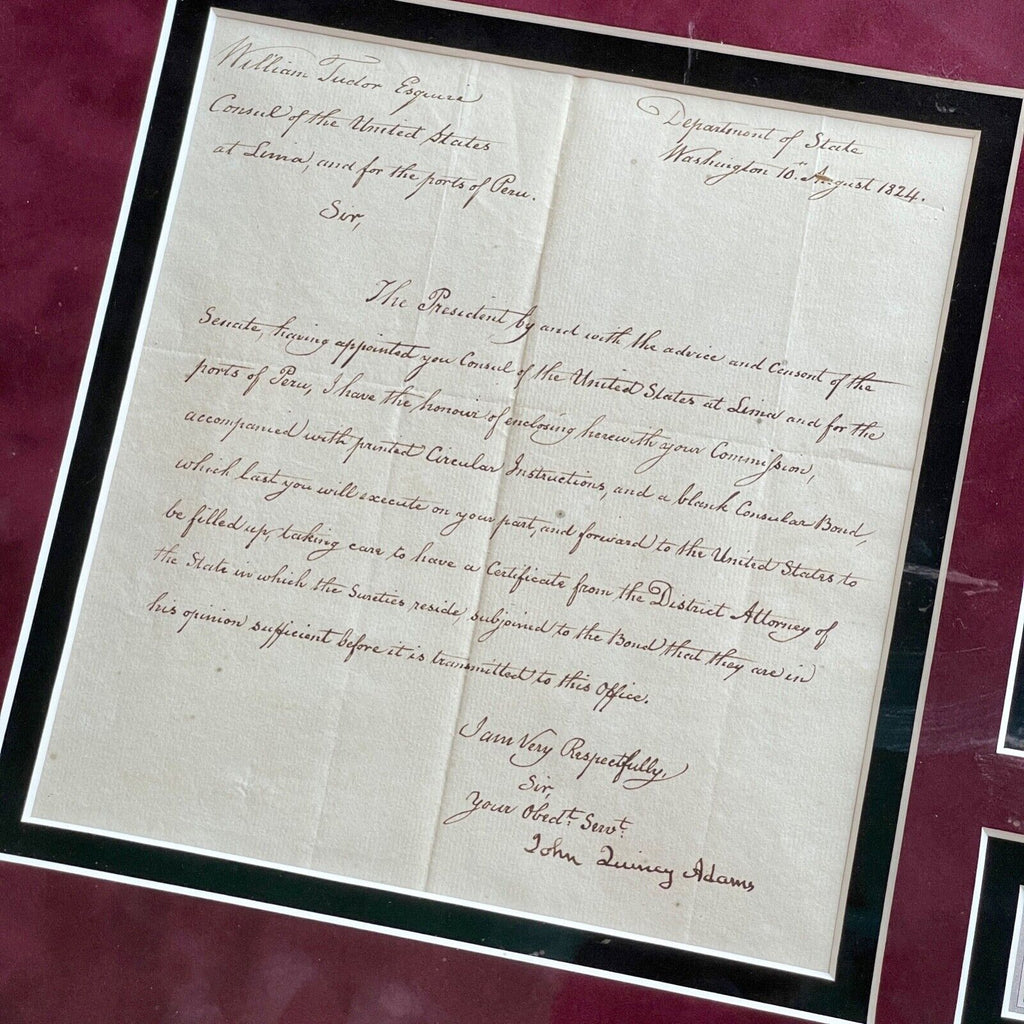 William Tudor Esquire
Consul of the United States
at Lima, and for the ports of Peru.
Sir,
Department of State
Washington 10th August 1824.
The President, by and with the advice and Consent of the
Senate, having appointed you Consul of the United States at Lima and for the
ports of Peru, I have the honour of enclosing herewith your Commission,
accompanied with printed Circular Instructions, and a blank Consular Bond,
which last you will execute on your part, and forward to the United States to
be filled up, taking care to have a Certificate from the District Attorney of
the State in which the Sureties reside, subjoined to the Bond that they are in
his opinion sufficient before it is transmitted to this Office.
I am Very Respectfully,
Sir,
Your Obedt. Servt.
John Quincy Adams